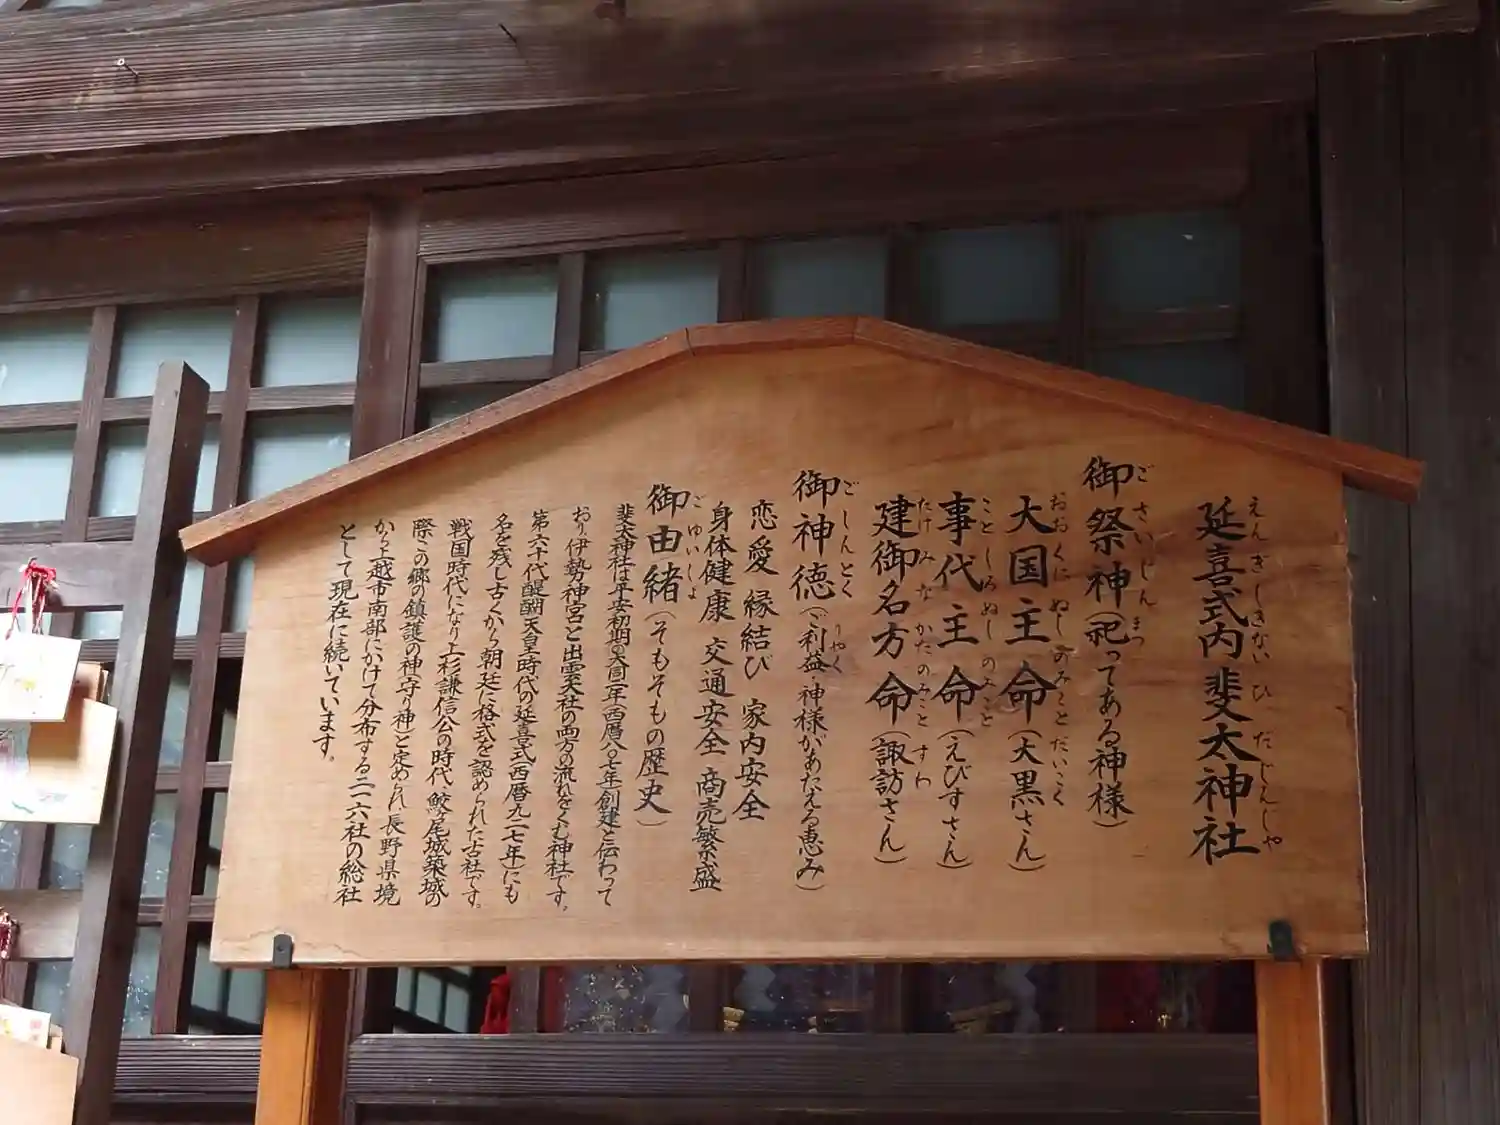 延喜式内 斐太神社
えんぎしきない ひだじんじゃ
御祭神(祀ってある神様)
ごさいじん まつ
大国主命(大黒さん)
おおくにぬしのみこと だいこく
事代主命(えびすさん)
ことしろぬしのみこと
建御名方命(諏訪さん)
たけみなかたのみこと すわ
御神徳(ご利益・神様があたえる恵み)
ごしんとく りやく
恋愛 縁結び 家内安全
身体健康 交通安全 商売繁盛
御由緒(そもそもの歴史)
ごゆいしょ
斐太神社は平安初期の大同二年(西暦八〇七年)創建と伝わって
おり伊勢神宮と出雲大社の両方の流れをくむ神社です。
第六十代醍醐天皇時代の延喜式(西暦九二七年)にも
名を残し古くから朝廷に格式を認められた古社です。
戦国時代になり上杉謙信公の時代 鮫ヶ尾城築城の
際この郷の鎮護の神(守り神)と定められ長野県境
から上越市南部にかけて分布する二一六社の総社
として現在に続いています。